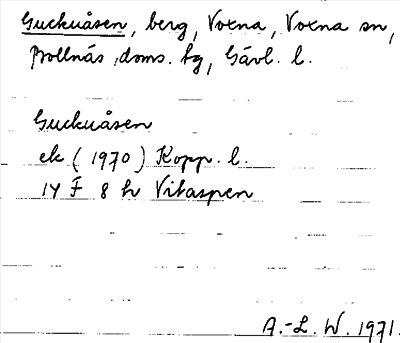 Guckuåsen, berg, Voxna, Voxna sn,
Bollnäs doms. hg, Gävl. l.
Guckuåsen
ek (1970) Kopp. l.
14 F 8 h Vitaspen
A.-L. W. 1971.